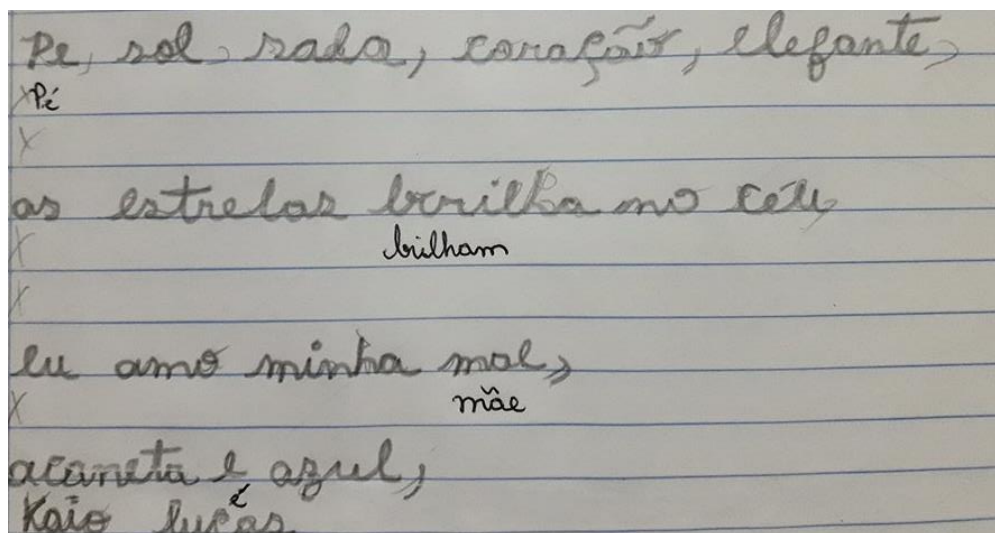 Pe, sol, sada, coração, elefante,
Pé
as estrelas brilha no céu,
brilham
eu amo minha mae,
mãe
acaneta e azul,
é
Kaio lucas